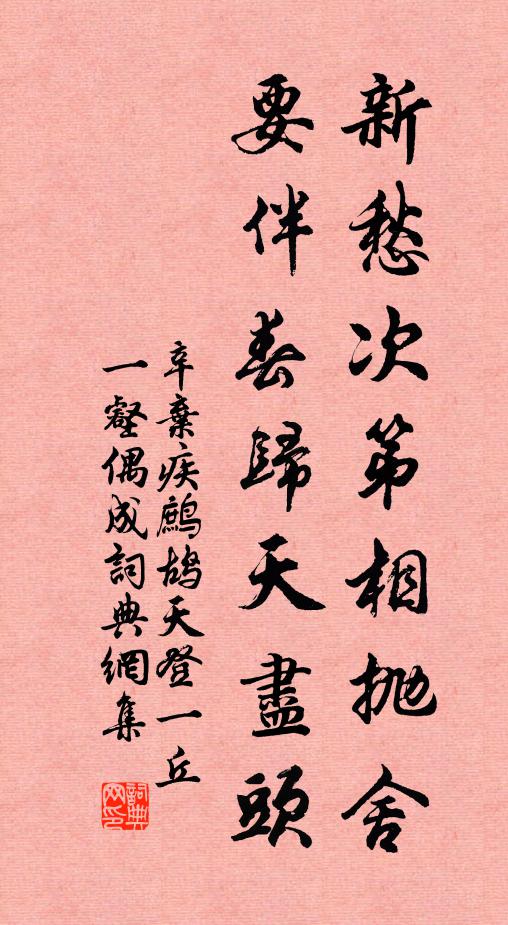 新愁次第相抛舍
要伴春歸天盡頭
辛棄疾鷓鴣天登一丘
一壑偶成詞典網集
詞典
网印